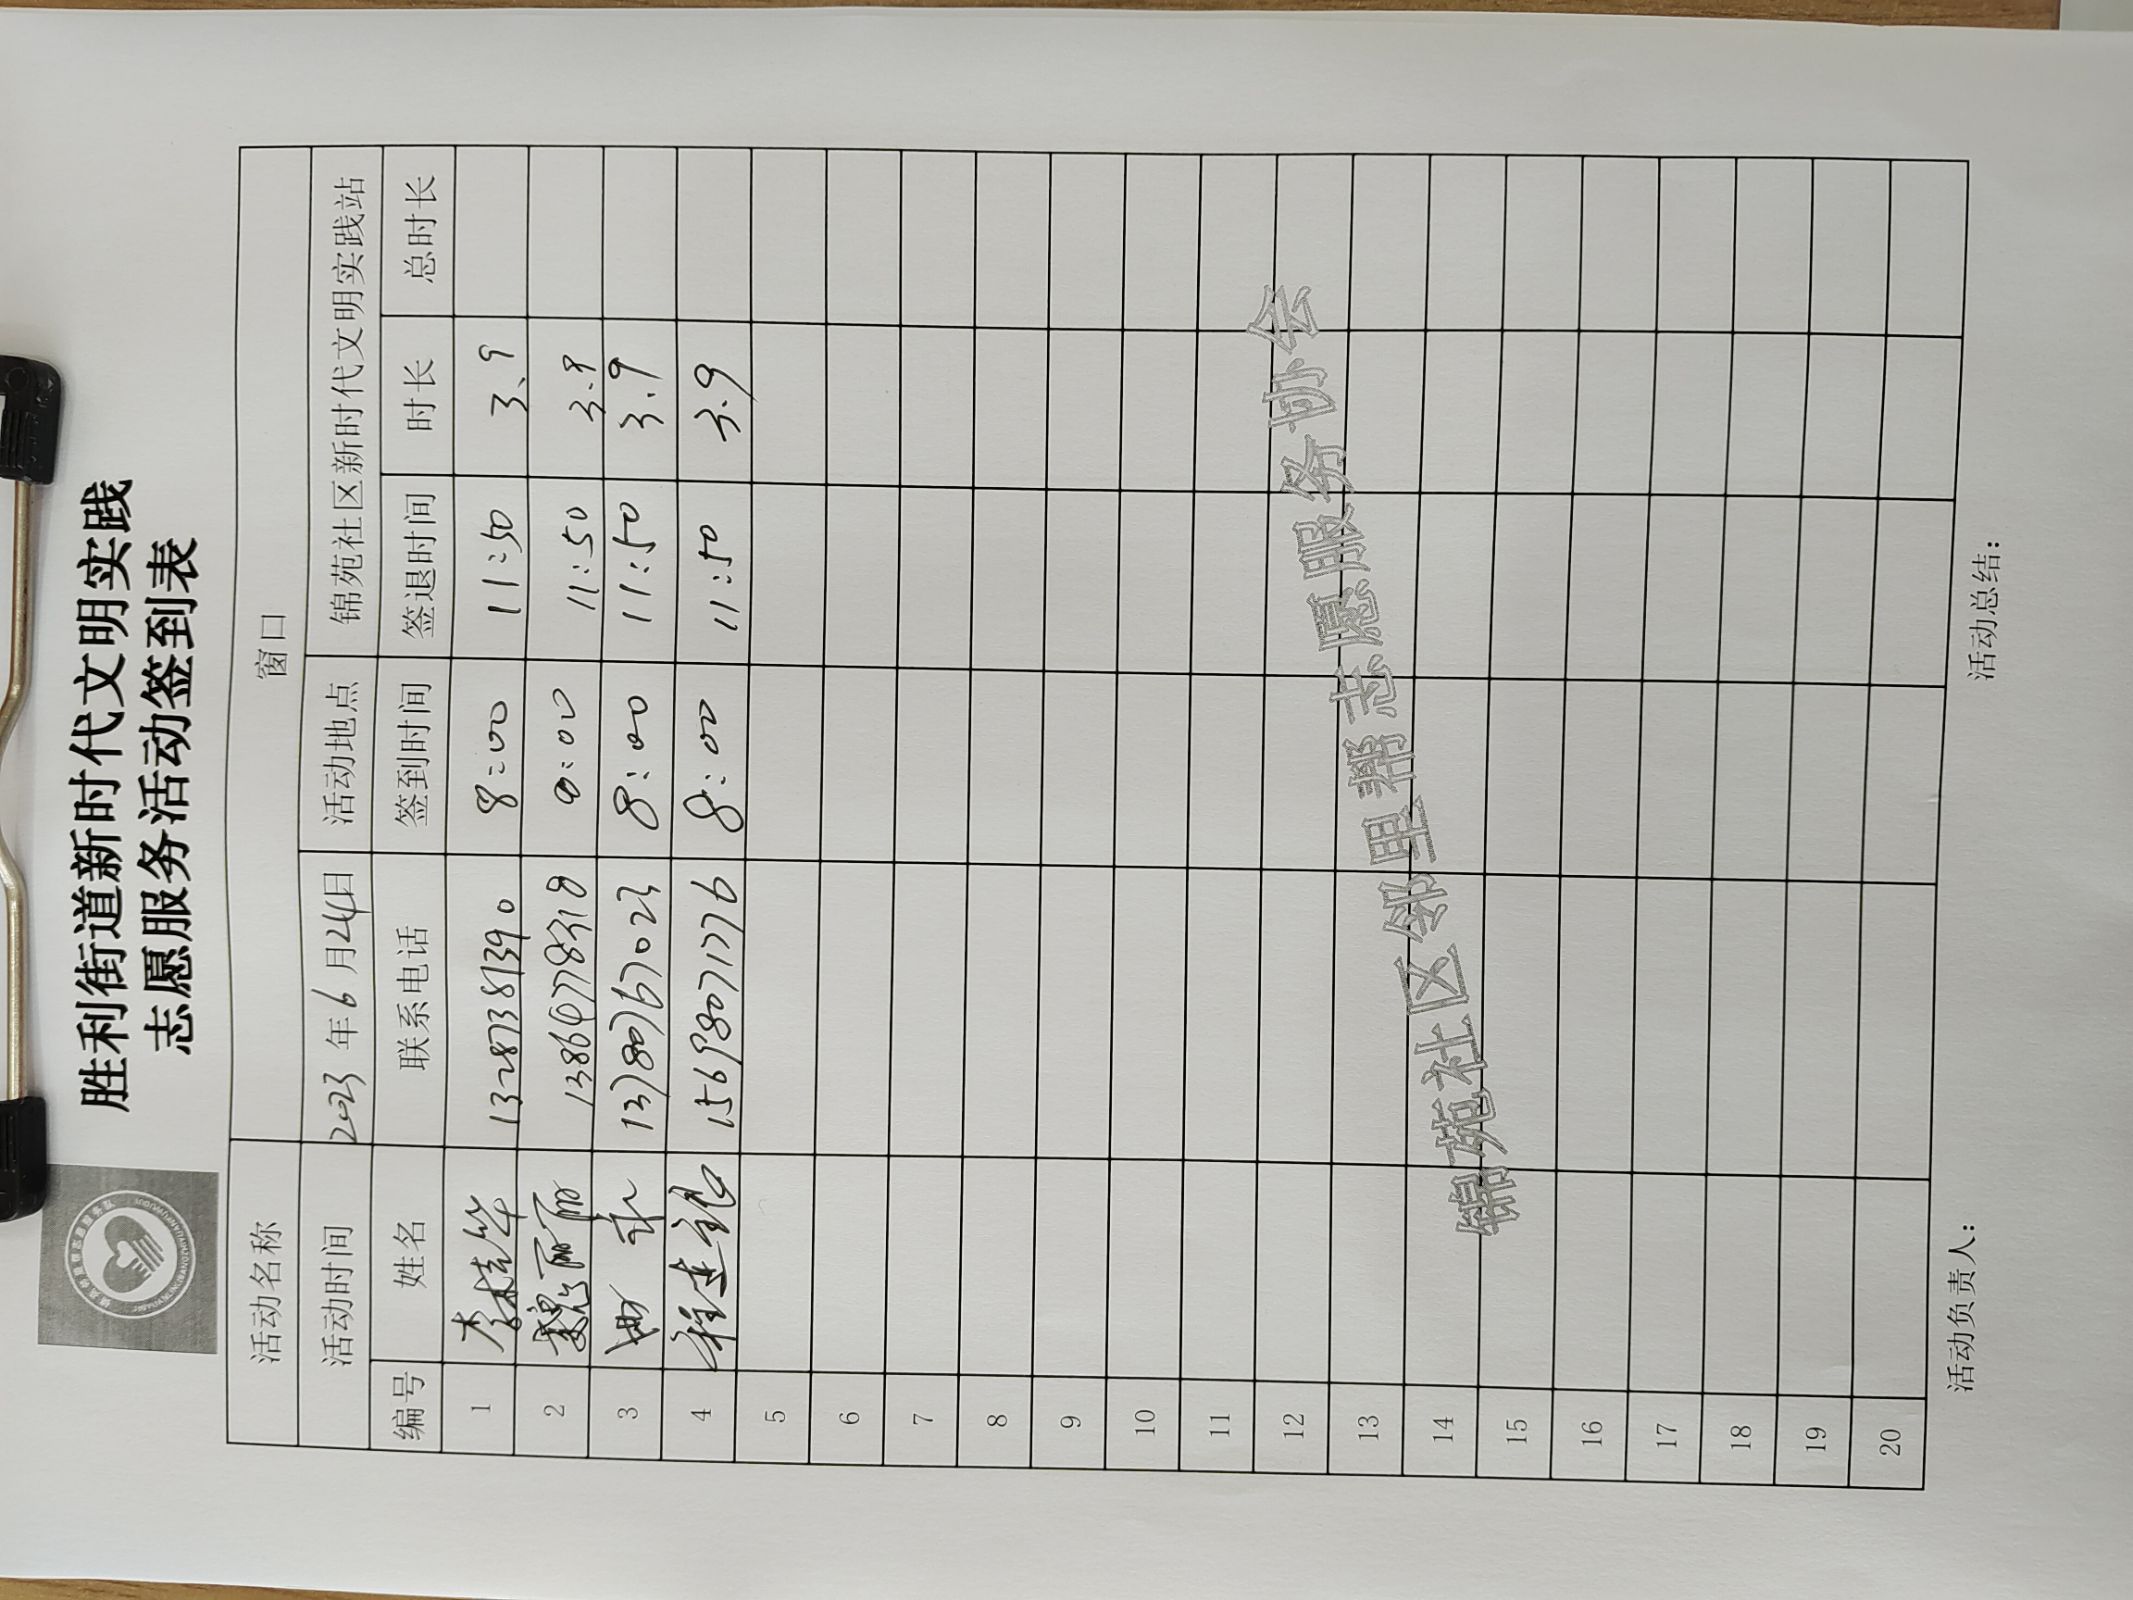 胜利街道新时代文明实践
志愿服务活动签到表
活动名称 窗口
活动时间 2023年6月24日 活动地点 锦苑社区新时代文明实践站
编号 姓名 联系电话 签到时间 签退时间 时长 总时长
1 李桂华 13287381390 8:00 11:50 3.9
2 魏丽丽 13864778318 8:00 11:50 3.9
3 13780767023 8:00 11:50 3.9
4 程建银 15698071776 8:00 11:50 3.9
5
6
7
8
9
10
11
12
13
14
15
16
17
18
19
20
锦苑社区邻里帮志愿服务协会
活动负责人： 活动总结：